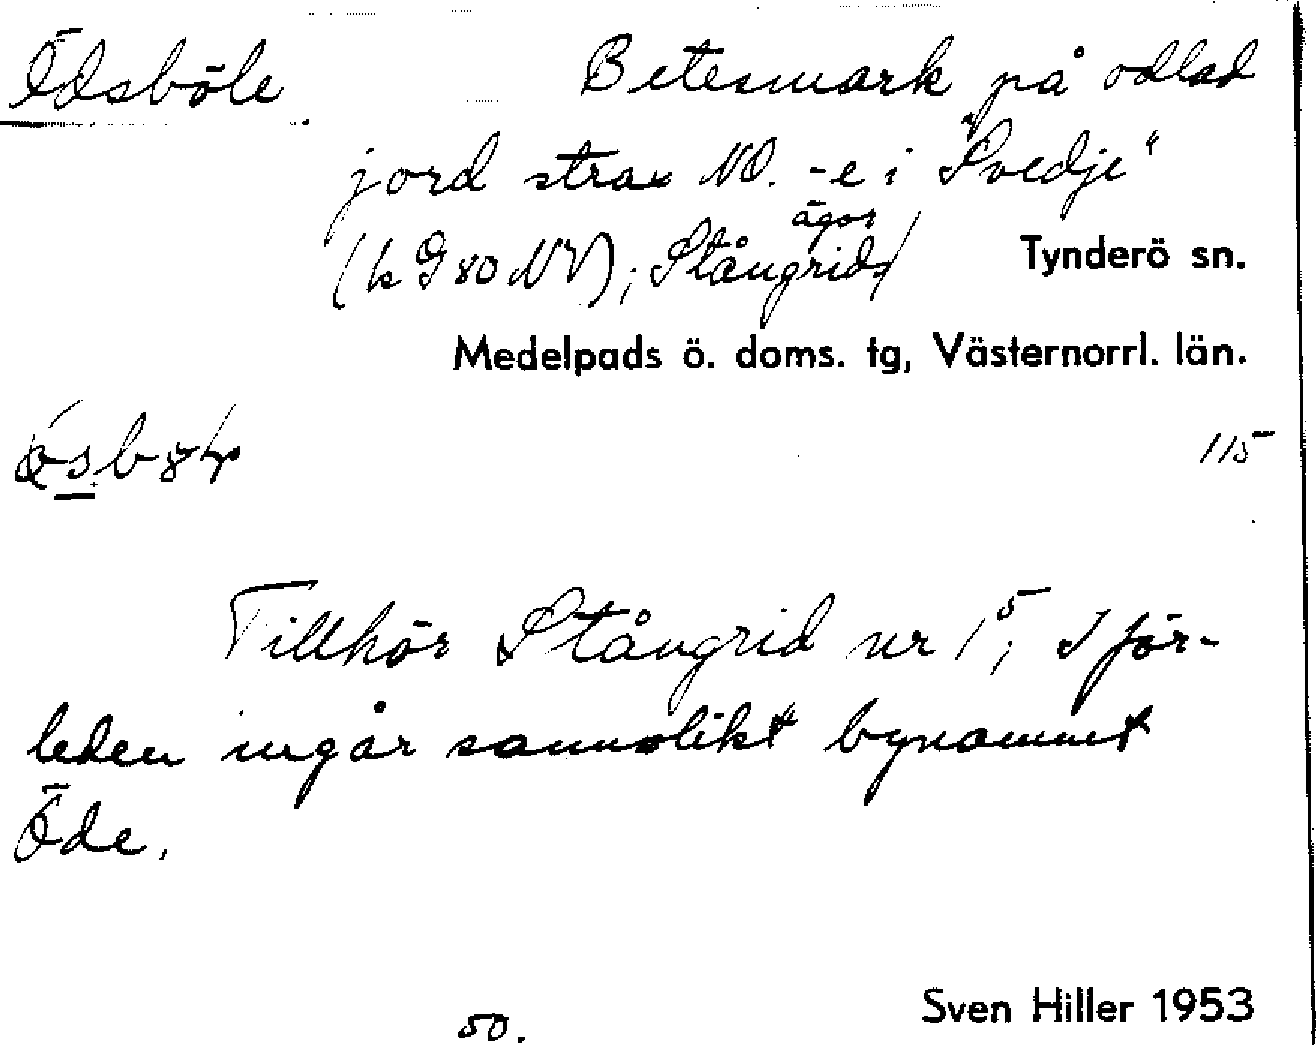 Ödsböle Betesmark på odlad
jord strax NO. -e i "Svedje"
(k G 80 NV); Stångrids ägor
Tynderö sn.
Medelpads ö. doms. tg, Västernorrl. län.
115
Tillhör Stångrid nr 1⁵; I för-
leden ingår sannolikt bynamnet
Öde.
50.
Sven Hiller 1953